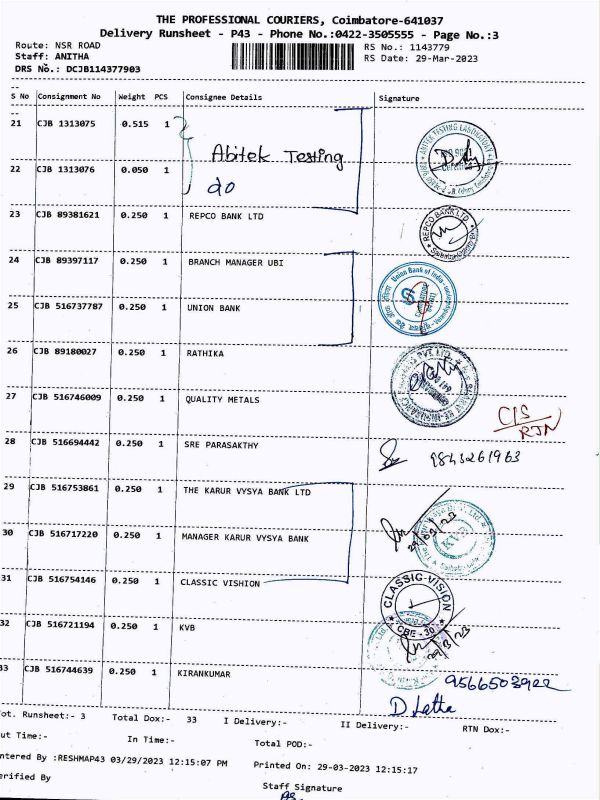 THE PROFESSIONAL COURIERS, Coimbatore-641037
Delivery Runsheet - P43 - Phone No.:0422-3505555 - Page No.:3
Route: NSR ROAD
RS No.: 1143779
Staff: ANITHA
RS Date: 29-Mar-2023
DRS No.: DCJB114377903
S No Consignment No Weight PCS Consignee Details Signature
21 CJB 1313075 0.515 1
Abitek Testing
22 CJB 1313076 0.050 1
do
23 CJB 89381621 0.250 1 REPCO BANK LTD
REPCO BANK LTD
24 CJB 89397117 0.250 1 BRANCH MANAGER UBI
Union Bank of India
25 CJB 516737787 0.250 1 UNION BANK
26 CJB 89180027 0.250 1 RATHIKA
27 CJB 516746009 0.250 1 QUALITY METALS
C/S
RTN
28 CJB 516694442 0.250 1 SRE PARASAKTHY
9843261963
29 CJB 516753861 0.250 1 THE KARUR VYSYA BANK LTD
30 CJB 516717220 0.250 1 MANAGER KARUR VYSYA BANK
KVB
31 CJB 516754146 0.250 1 CLASSIC VISHION
CLASSIC-VISION
CBE - 30
32 CJB 516721194 0.250 1 KVB
29/3/23
33 CJB 516744639 0.250 1 KIRANKUMAR
9566503922
D Latha
ot. Runsheet:- 3 Total Dox:- 33 I Delivery:- II Delivery:- RTN Dox:-
ut Time:- In Time:- Total POD:-
ntered By :RESHMAP43 03/29/2023 12:15:07 PM Printed On: 29-03-2023 12:15:17
erified By Staff Signature